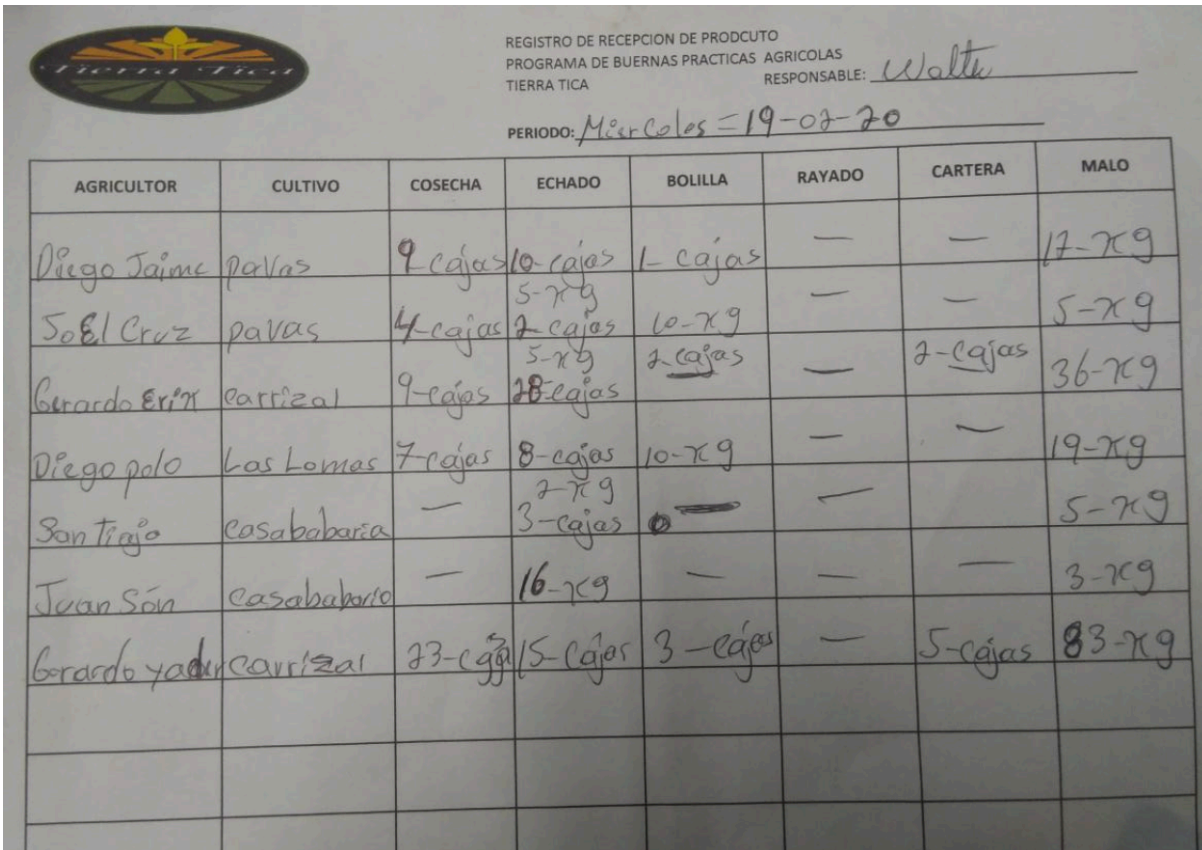 Tierra Tica
REGISTRO DE RECEPCION DE PRODCUTO
PROGRAMA DE BUERNAS PRACTICAS AGRICOLAS
TIERRA TICA RESPONSABLE: Walter
PERIODO: Miercoles = 19-02-20
AGRICULTOR CULTIVO COSECHA ECHADO BOLILLA RAYADO CARTERA MALO
Diego Jaime pavas 9-cajas 10-cajas 1-cajas — — 17-Kg
5-Kg
JoEl Cruz pavas 4-cajas 2-cajas 10-Kg — — 5-Kg
5-Kg 2-cajas — 2-cajas 36-Kg
Gerardo Erix carrizal 9-cajas 28-cajas
Diego polo Las Lomas 7-cajas 8-cajas 10-Kg — — 19-Kg
2-Kg
San Tiajo Casababaria — 3-cajas — — 5-Kg
Juan Són Casababario — 16-Kg — — — 3-Kg
Gerardo yader Carrizal 23-caja 15-Cajas 3-cajas — 5-cajas 83-Kg